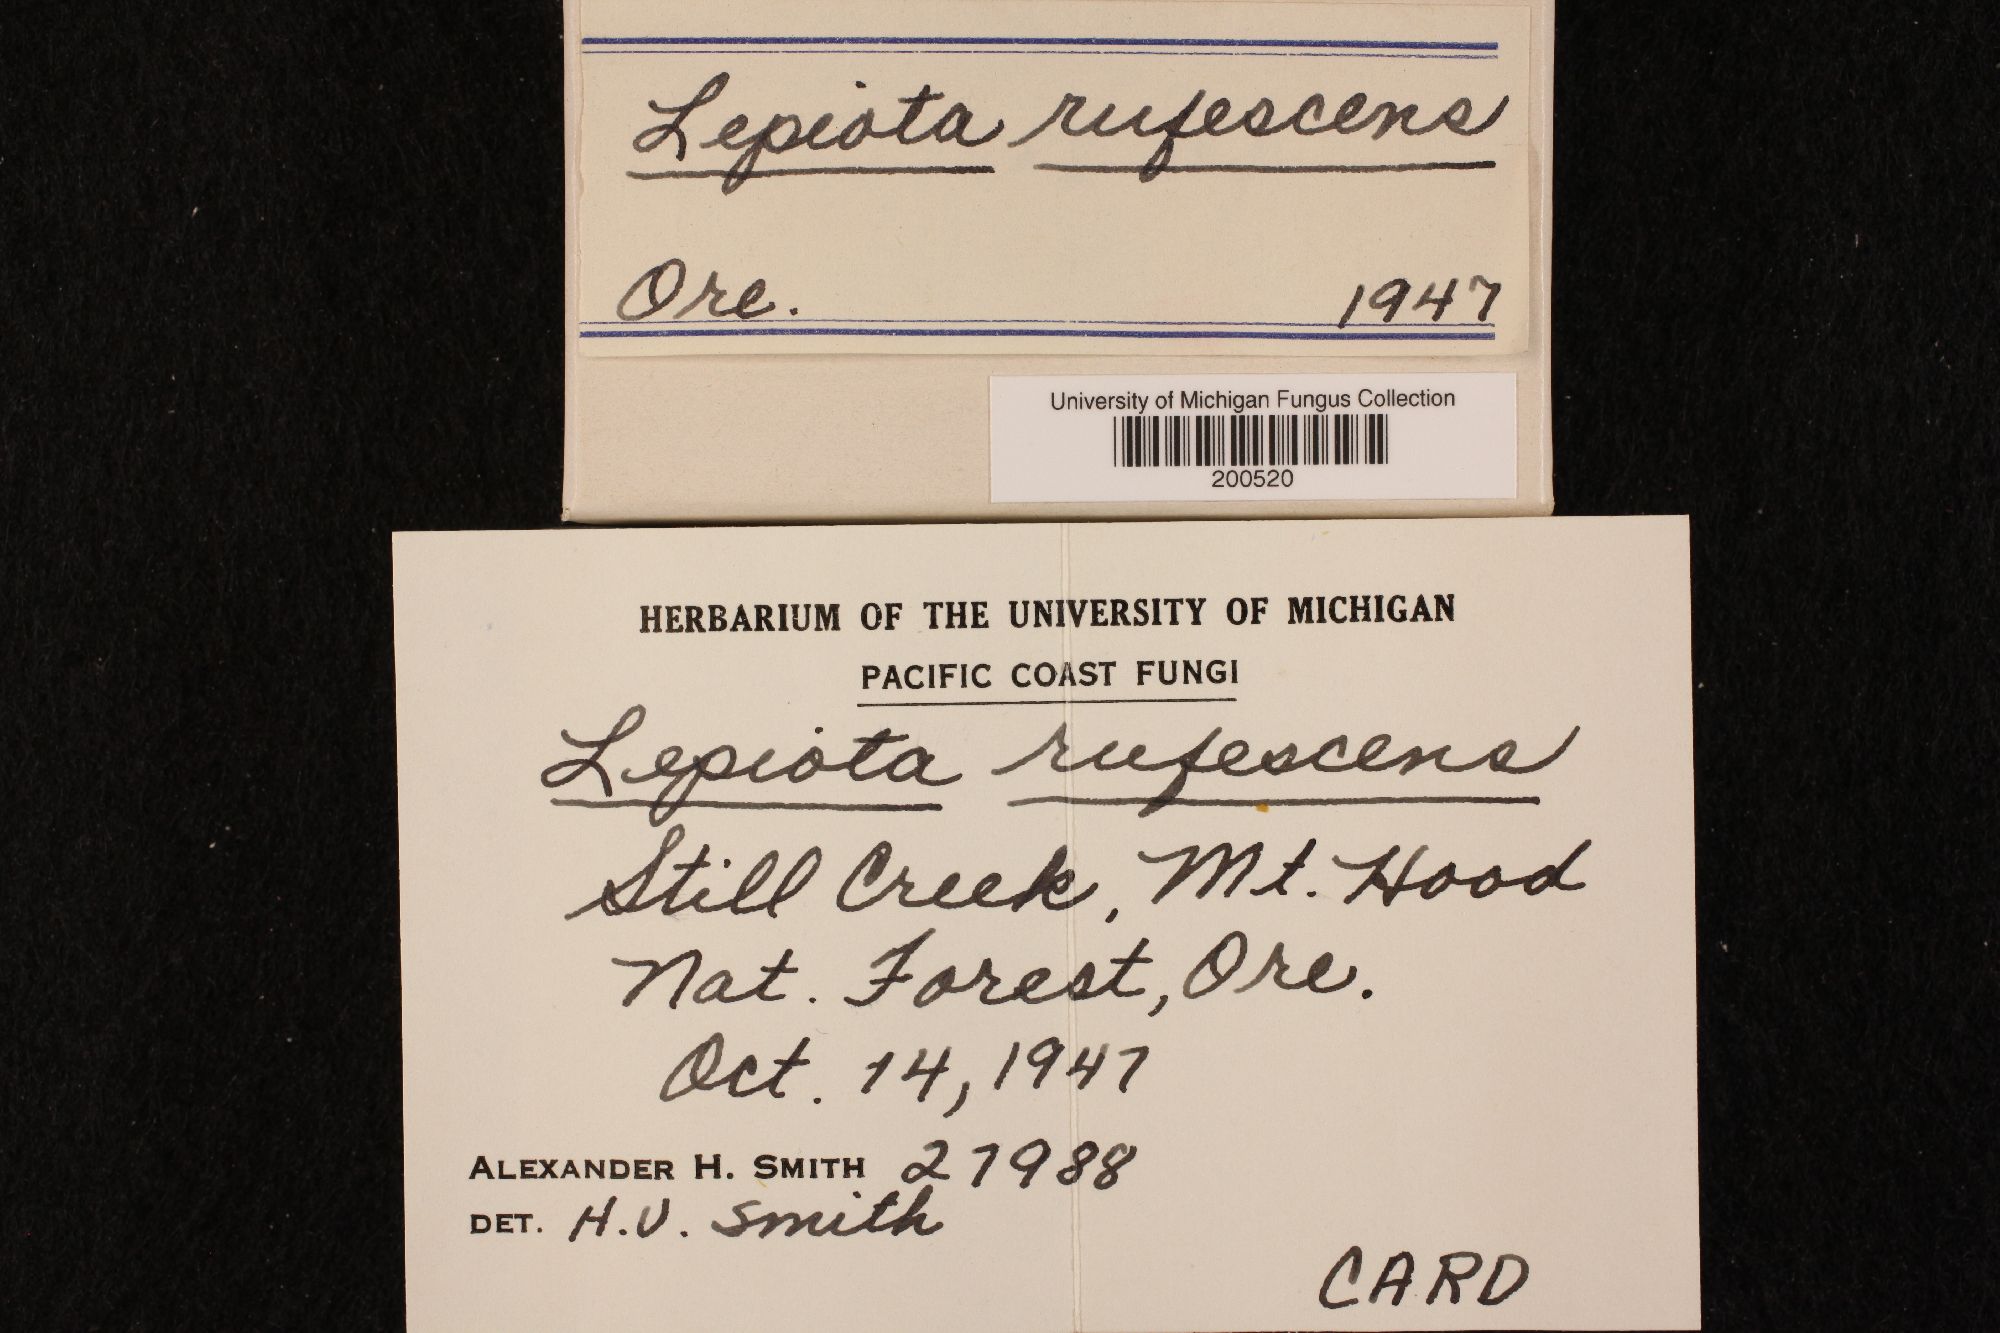 Lepiota rufescens
Ore. 1947
University of Michigan Fungus Collection
200520
HERBARIUM OF THE UNIVERSITY OF MICHIGAN
PACIFIC COAST FUNGI
Lepiota rufescens
Still Creek, Mt. Hood
Nat. Forest, Ore.
Oct. 14, 1947
ALEXANDER H. SMITH 27988
DET. H.V. Smith
CARD